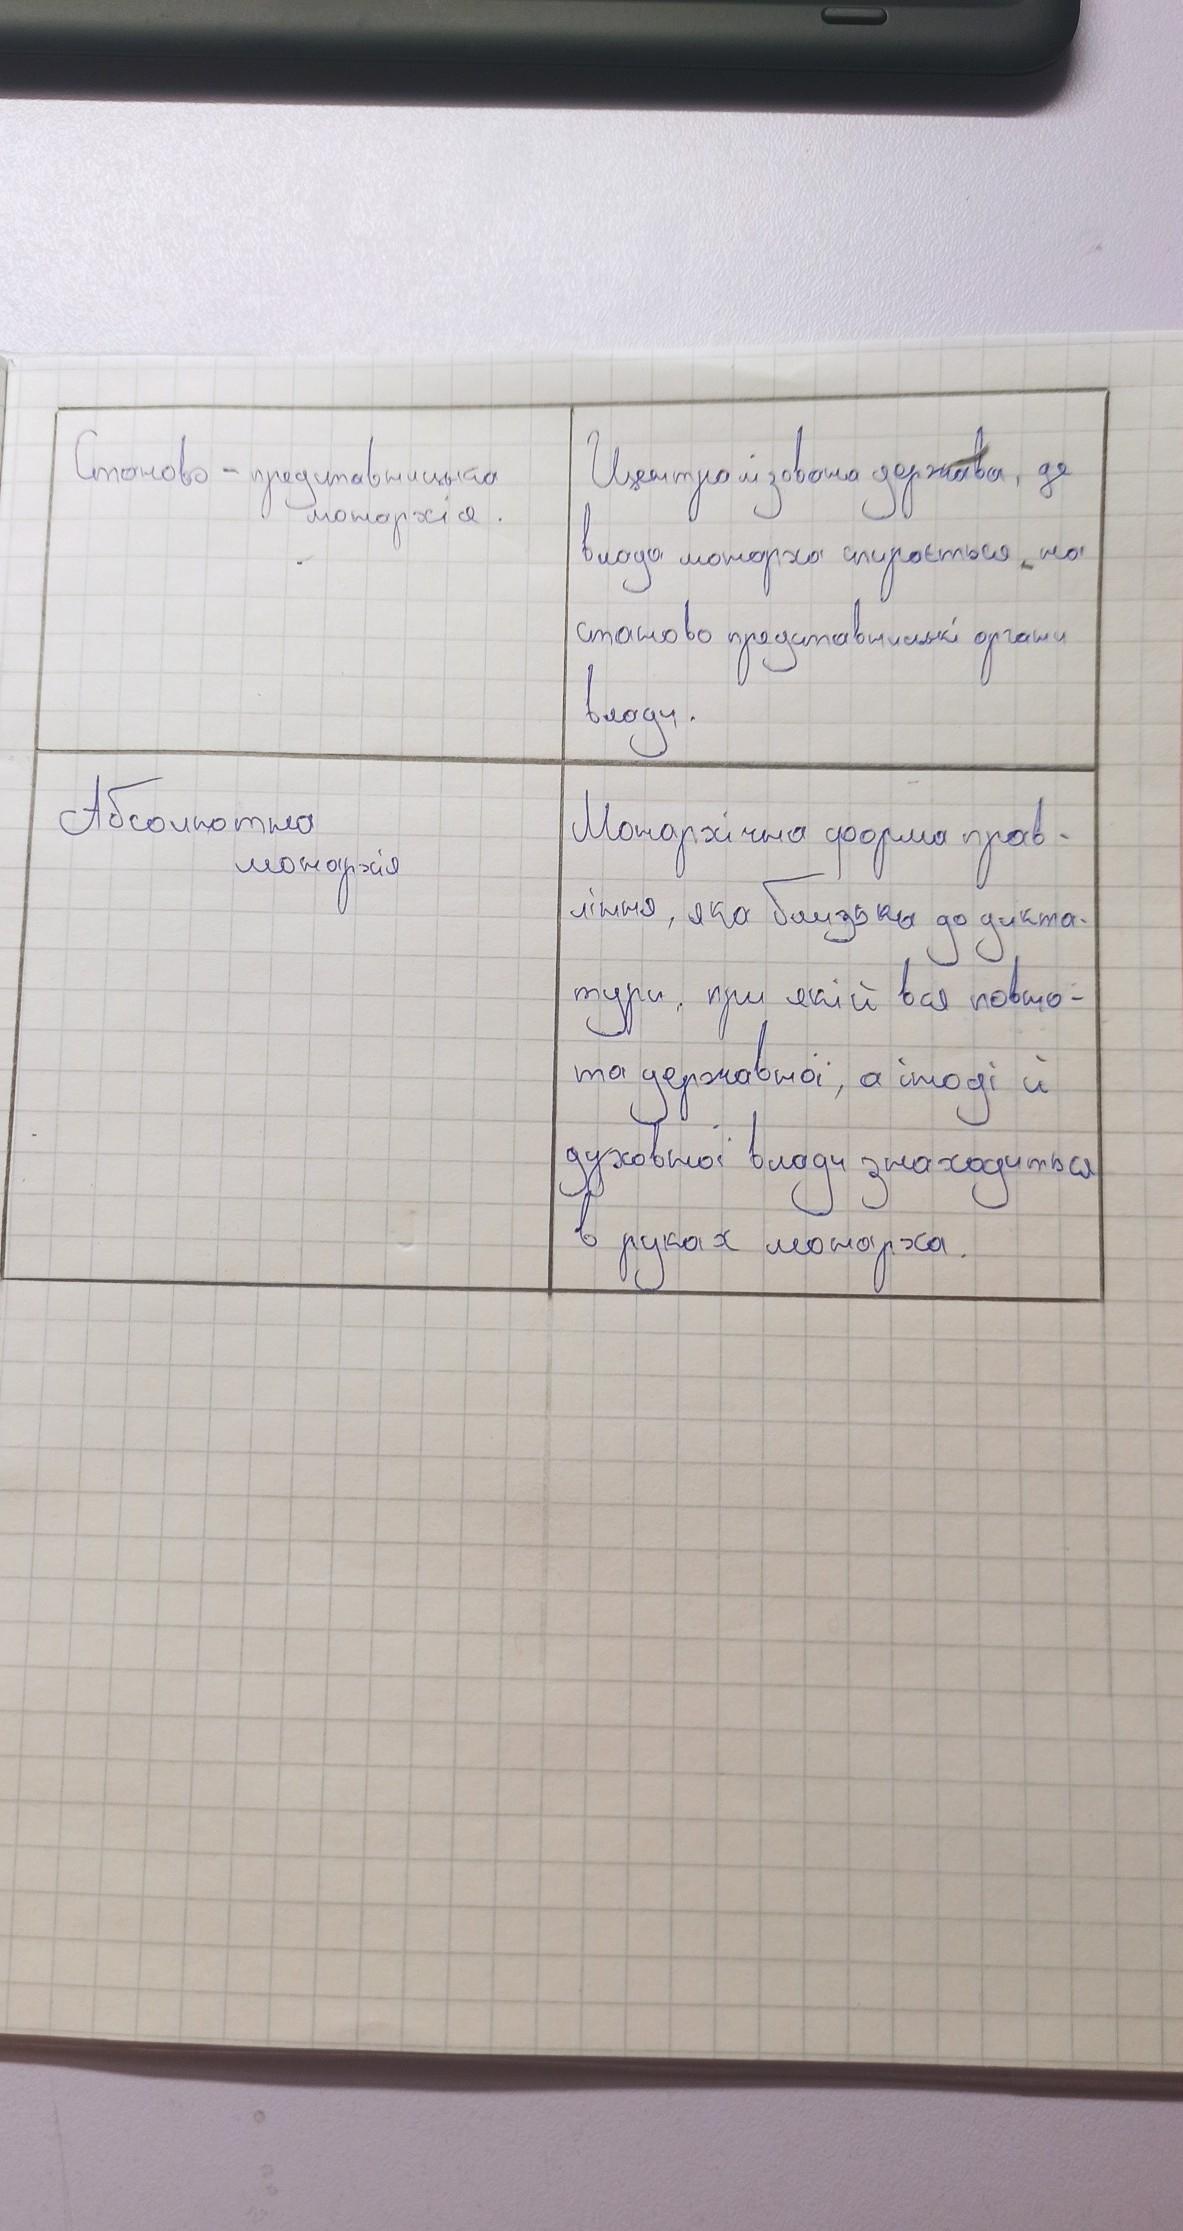 Станово - представницька
монархія.
Централізована держава, де
влада монарха спирається на
станово представницькі органи
влади.
Абсолютна
монархія
Монархічна форма прав-
ління, яка близька до дикта-
тури, при якій вся повно-
та державної, а іноді й
духовної влади знаходиться
в руках монарха.